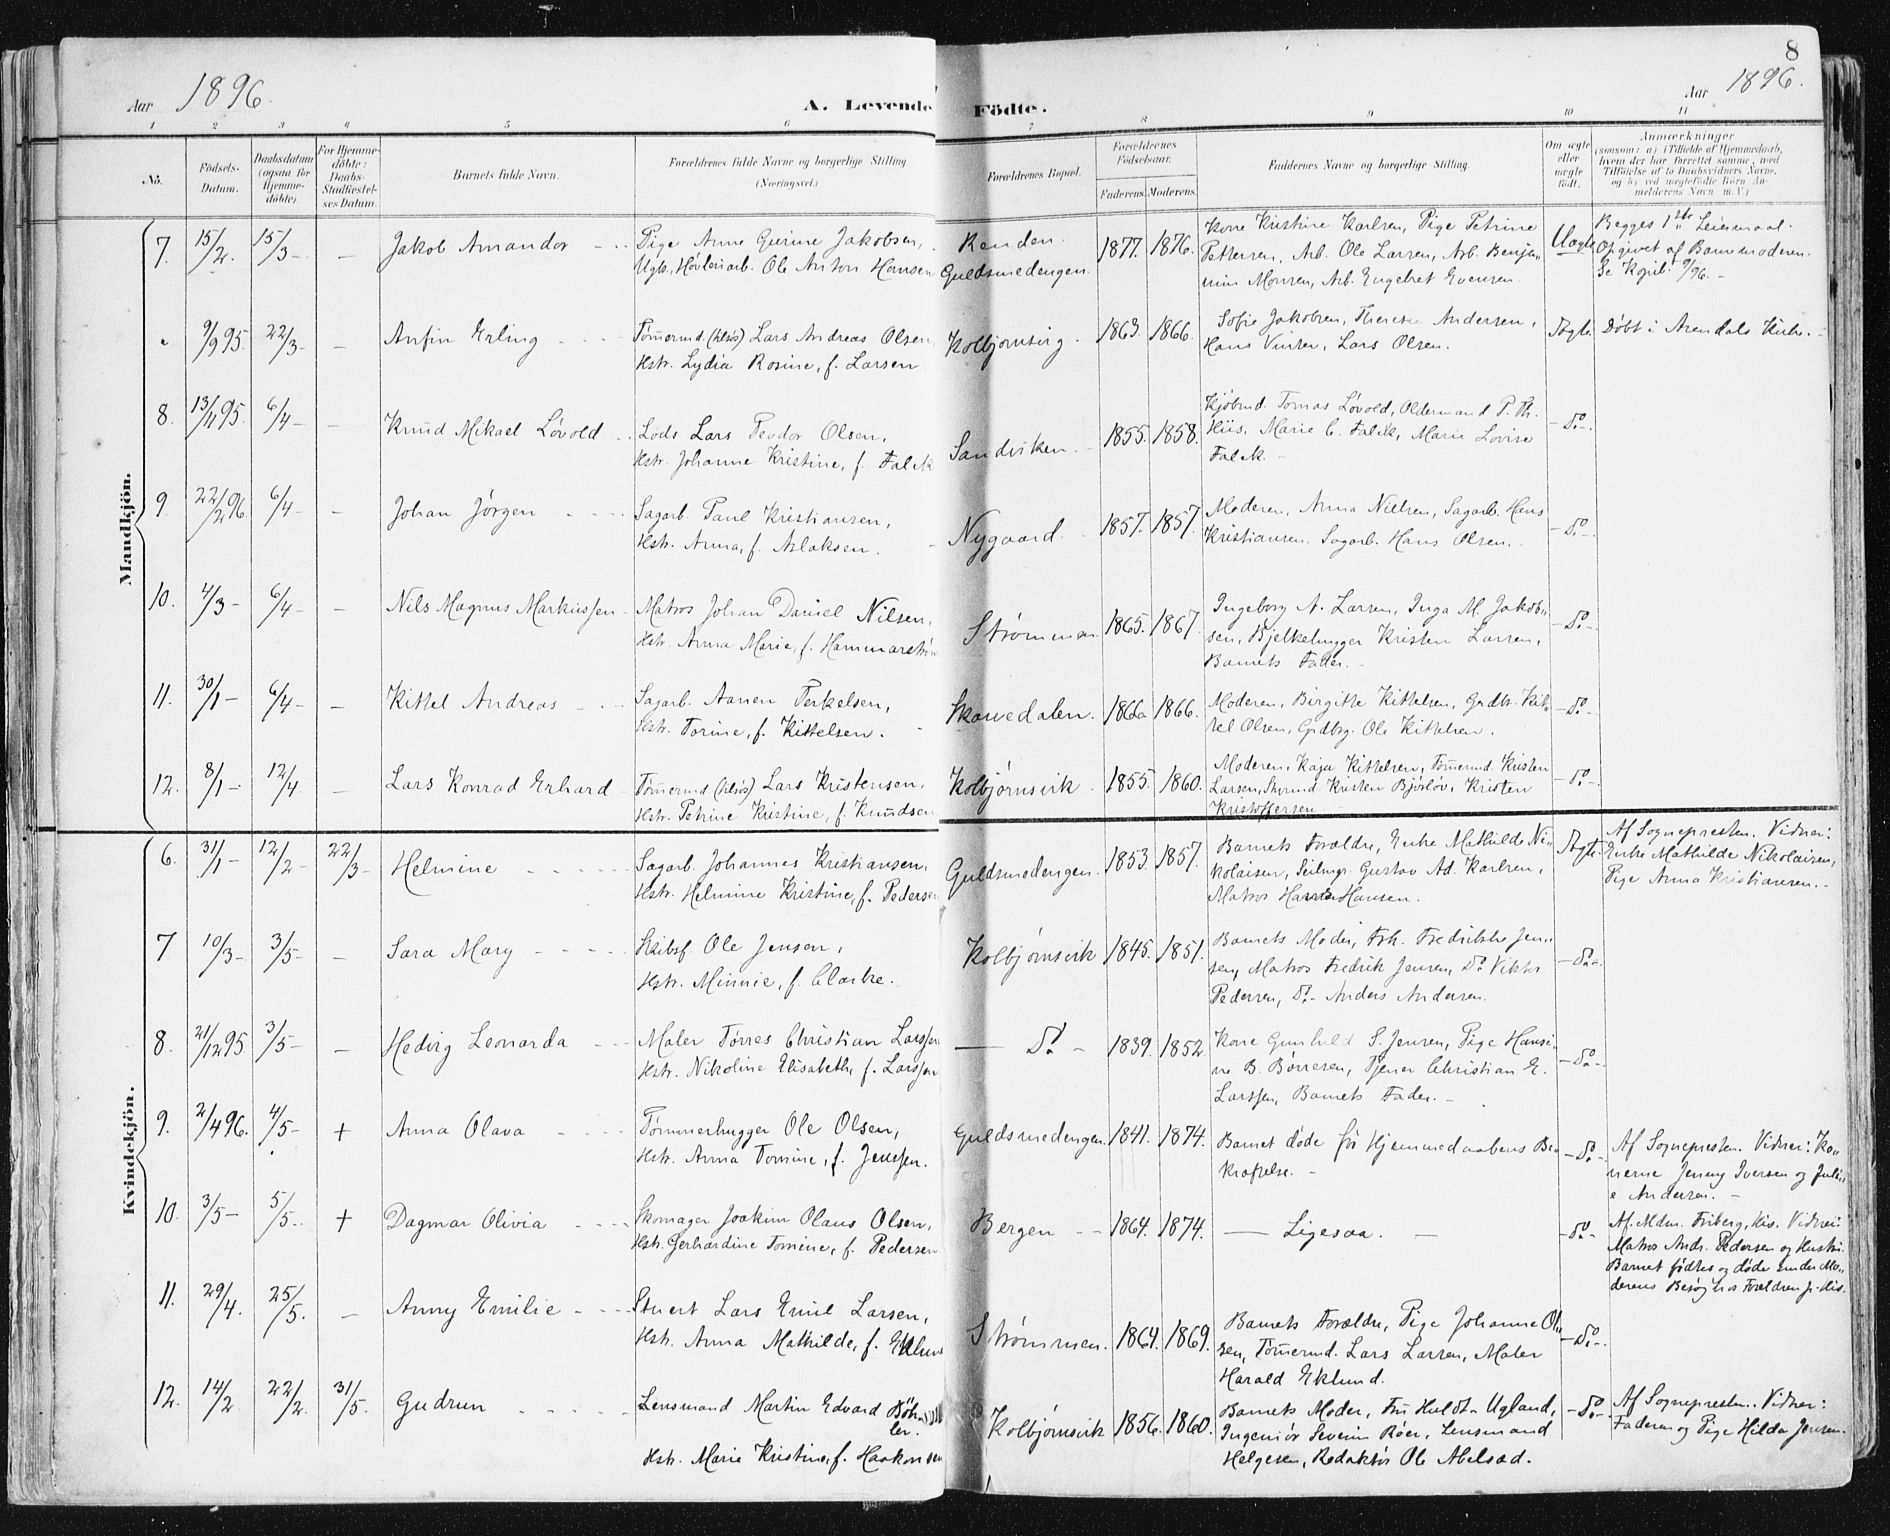 8
Aar 1896.
A. Levende Födte.
Aar 1896.
1 2 3 4 5 6 7 8 9 10 11
No.
Födsels-Datum.
Daabsdatum (ogsaa for Hjemmedöbte).
For Hjemmedöbte: Daabs-Stadfæstelses Datum.
Barnets fulde Navn.
Forældrenes fulde Navne og borgerlige Stilling (Næringsvei.)
Forældrenes Bopæl.
Forældrenes Födselsaar.
Faderens. Moderens.
Faddernes Navne og borgerlige Stilling.
Om ægte eller uægte födt.
Anmærkninger
(saasom: a) i Tilfælde af Hjemmedaab, hvem der har forrettet samme, med Tilföielse af to Daabsvidners Navne, og b) ved uægtefödte Börn Anmelderens Navn m. V.)
Mandkjön.
7. 15/2. 15/3 - - Jakob Amandor - - Pige Anne Gurine Jakobsen, Renden. 1877. 1876. Kone Kristine Karlsen, Pige Petrine Uægte Begges 1ste Leiermaal.
Ugb. Høvleriarb. Ole Anton Hansen Guldsmedengen. Pettersen, Arb. Ole Larsen, Arb. Benja- Opgivet af Barnemoderen.
min Monsen, Arb. Engebret Evensen. Se Kopul. 9/96. -
9/9 95. 22/3 - - Anfin Erling - - - Tømmermd. (hlsös) Lars Andreas Olsen, Kolbjørnsvig. 1863. 1866. Sofie Jakobsen, Therese Andersen, Ægte. Døbt i Arendals Kirke. -
Hstr. Lydia Rosine, f. Larsen Hans Vinter, Lars Olsen.
8. 13/11 95. 6/4 - - Knud Mikael Løvold - - Lods Lars Teodor Olsen, Sandviken. - 1855. 1858. Kjøbmd. Tomas Løvold, Oldermand P. Th. - Do. -
Hstr. Johanne Kristine, f. Falck Hiis, Marie C. Falck, Marie Lovise
Falck. -
9. 22/2 96. 6/4 - - Johan Jørgen - - - Sagarb. Paul Kristiansen, Nygaard. 1857. 1857. Moderen, Anna Nielsen, Sagarb. Hans - Do. -
Hstr. Anna, f. Aslaksen. - Kristiansen. Sagarb. Hans Olsen. -
10. 4/3 - 6/4 - - Nils Magnus Markussen - Matros Johan Daniel Nilsen, Strømmen. 1865. 1867. Ingeborg A. Larsen, Inga M. Jakob- - Do. -
Hstr. Anna Marie, f. Hammarström sen, Bjelkehugger Kristen Larsen,
Barnets Fader. -
11. 30/1 - 6/4 - - Kittel Andreas - - - Sagarb. Aanen Terkelsen, Skarvedalen. 1866. Moderen, Birgitte Kittelsen, Grdbr. Kit- - Do. -
Hstr. Torine, f. Kittelsen. - tel Olsen, Grdbrg. Ole Kittelsen.
12. 8/1 - 12/4 - Lars Konrad Erhard - Tømmermd (hlsös) Lars Kristensen, Kolbjørnsvik. 1855. 1860. Moderen, Kaja Kittelsen, Tømmermd. Kristen - Do. -
Hstr. Petrine Kristine, f. Knudsen Larsen, Styrmd Kristen Bjørløv, Kristen
Kristoffersen
Kvindekjön.
6. 31/1 - 12/2 - 22/3 - Helmine - - - - - Sagarb. Johannes Kristiansen, Guldsmedengen. 1853. 1857. Barnets Forældre, Enke Mathilde Ni- Ægte. Af Sognepresten. Vidner:
Hstr. Helmine Kristine, f. Pedersen kolaisen, Seilmgr. Gustav Ad. Karlsen, Enke Mathilde Nikolaisen,
Matros Hans Hansen. Pige Anna Kristiansen. -
7. 10/3 - 3/5 - - Sara Mary - - - - Skibsf. Ole Jensen, Kolbjørnsvik 1845. 1851. Barnets Moder, Frk. Fredrikke Jen- - Do. -
Hstr. Minnie, f. Clarke. sen, Matros Fredrik Jensen, Do. Viktor
Pedersen, Do. - Anders Andersen.
8. 21/12 95 3/5 - - Hedvig Leonarda - - Maler Tørres Christian Larssen - Do. - 1839. 1852. Kone Gunhild S. Jensen, Pige Hansi- - Do. -
Hstr. Nikoline Elisabeth, f. Larssen ne B. Børresen, Tjener Christian E.
Larssen, Barnets Fader. -
9. 2/4 96. 4/5 - + Anna Olava - - - - Tømmerhugger Ole Olsen, Guldsmedengen. 1841. 1874. Barnet døde før Hjemmedaabens Be- - Do. - Af Sognepresten. Vidner: Ko-
Hstr. Anna Tomine, f. Jenssen. kræftelse. - nerne Jenny Iversen og Juli-
e Andersen. -
10. 3/5 - 5/5 - + Dagmar Olivia - - - Skomager Joakim Olaus Olsen, Bergen - - 1864. 1874. - Ligesaa. - - Do. - Af Mdm. Friberg, His. Vidner:
Hstr. Gerhardine Tomine, f. Pedersen Matros Ands. Pedersen og Hustru.
Barnet fødtes og døde under Mo-
derens Besøg hos Forældren p. His.
11. 29/4. 25/5. - Anny Emilie - - - Stuert Lars Emil Larsen, Strømmen. 1864. 1869. Barnets Forældre, Pige Johanne Ol- - Do. -
Hstr. Anna Mathilde, f. Eklund sen, Tømmermd. Lars Larsen, Maler
Harald Eklund.
12. 14/2. 22/2. 31/5. Gudrun - - - - - Lensmand Martin Edvard Bøh- Kolbjørnsvik 1856. 1860. Barnets Moder, Fru Huldt-Ugland, - Do. - Af Sognepresten. Vidner:
ler. Ingeniør Severin Røer, Lensmand Faderen og Pige Hilda Jensen.
Hstr. Marie Kristine, f. Haakonsen Helgesen, Redaktør Ole Abelsæd.